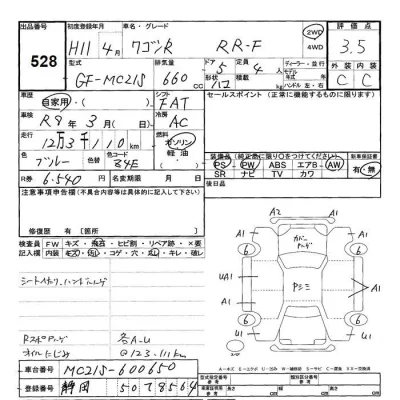 出品番号 初度登録年月 車名・グレード 2WD 4WD 評価点
528 H11年4月 ワゴンR RR-F 3.5
型式 排気量 ドア 形状 定員 ディーラー・並行 外装 内装
GF-MC21S 660cc 5 4人 モデル年式 年 ハンドル 左・右 C C
車歴 自家用・( ) シフト FAT セールスポイント(正常に機能するものに限ります)
車検 R9年3月(日) 冷房 AC
走行 12万3千110km 燃料 ガソリン 軽油
色 ブルー 色替 色コード
装備品(純正品に限り○をつけてください) 記録簿保証書
PS PW ABS エアB AW 有・無
SR ナビ TV カワ
R券 6.540 名義変更期限 月 日 後日品
注意事項申告欄(不具合内容等は具体的に記入して下さい。)
修復歴 有〔箇所 〕
検査員 FW キズ・飛石・ヒビ割・リペア跡・×要
記入欄 内装 キズ・汚レ・コゲ・穴・凹レ・キレ・破レ
A2
A1 A1
A1 A1
UA1 PシミA1
A1
U1 U1
各A-U
@123,111km
車台番号 MC21S-600650
登録番号 静岡 50 7856
A-キズ E-エクボ U-凹み W-補修跡 S-サビ C-腐食 X-要交換 XX-交換済